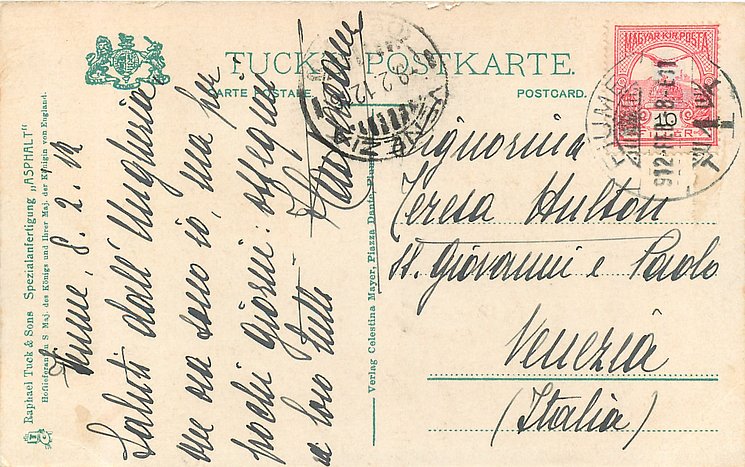 TUCK'S POSTKARTE.
CARTE POSTALE.
POSTCARD.
Raphael Tuck & Sons Spezialanfertigung „ASPHALT"
Hoflieferanten S. Maj. des Königs und Ihrer Maj. der Königin von England.
Fiume, 8. 2. 12
Saluti dall'Ungheria
ove ora sono io, ma per
pochi giorni: ossequi
a loro tutti
Verlag Celestina Mayer, Piazza Dante, Fiume
MAGYAR KIR. POSTA
10
FILLER
FIUME
912 FEB. 8
VENEZIA
8 2 12
Signorina
Teresa Hulton
SS. Giovanni e Paolo
Venezia
(Italia)